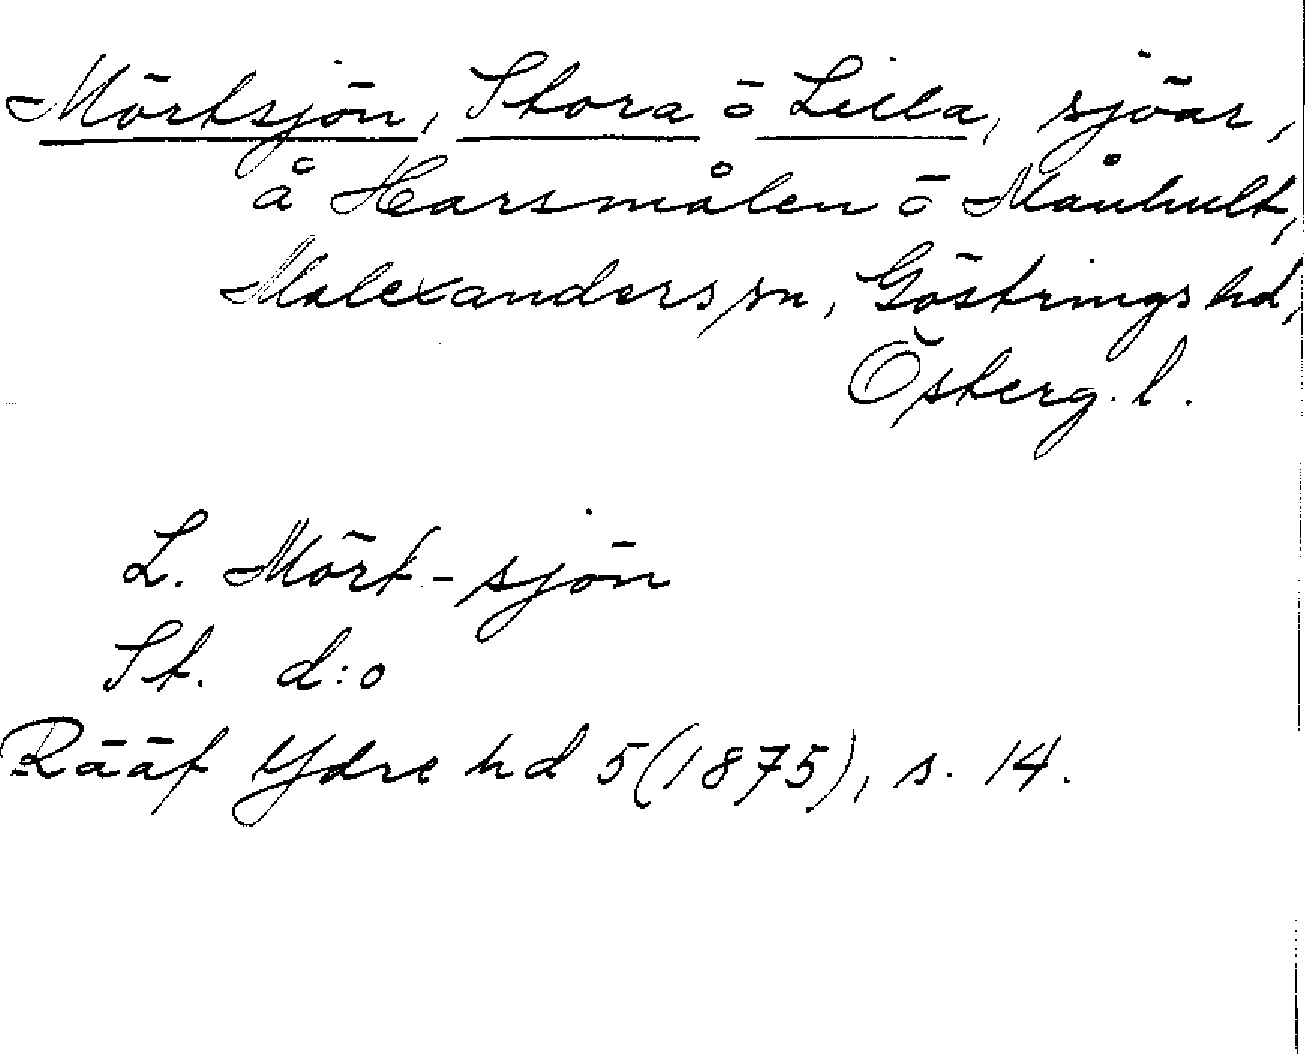 Mörtsjön, Stora ō Lilla, sjöar,
å Harsmålen ō Månhult,
Malexanders sn, Göstrings hd,
Österg. l.
L. Mört-sjön
St. d:o
Rääf Ydre hd 5(1875), s. 14.